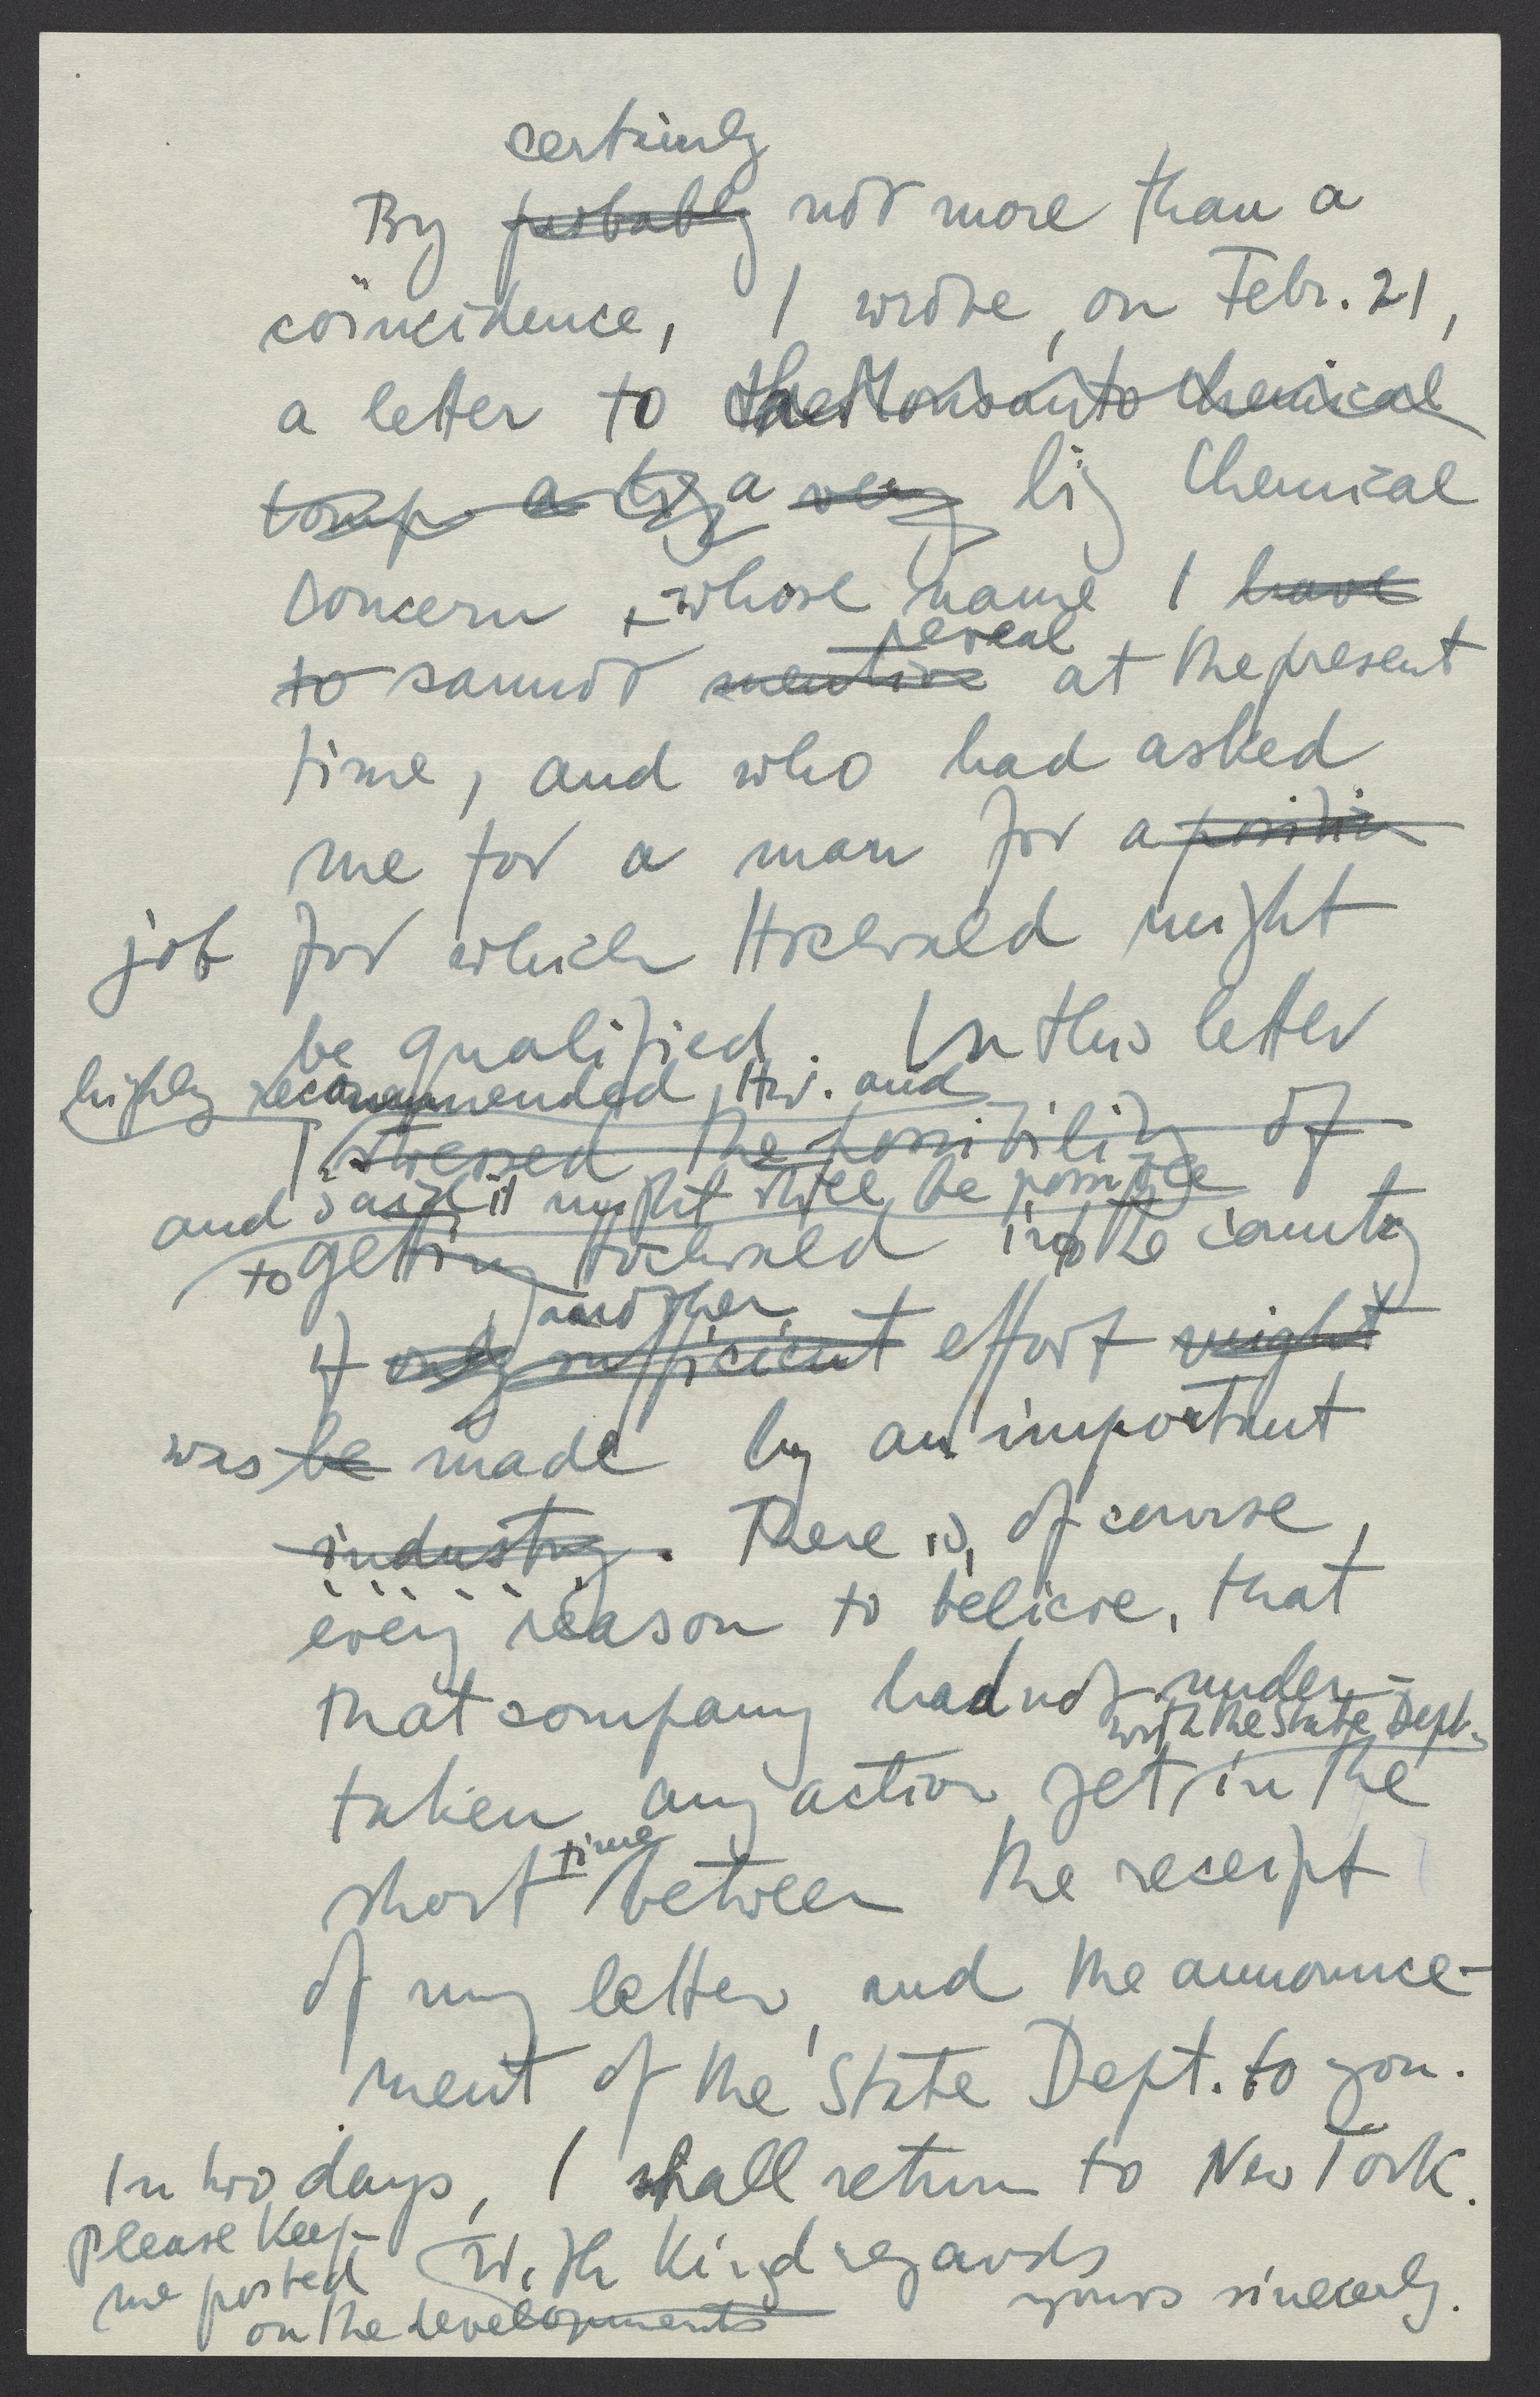 certainly
By probably not more than a
coïncidence, I wrote, on Febr. 21,
a letter to the Monsanto Chemical
Comp. a big a very big Chemical
concern, whose name I have
reveal
to cannot mention at the present
time, and who had asked
me for a man for a position
job for which Hochwald might
be qualified. In this letter
highly recommended Hw. and
I stressed the possibility of
and said it might still be possible
to getting Hochwald into the country
another
if only sufficient effort might
was be made by an important
industry. There is, of course,
every reason to believe, that
that company had not under-
with the State Dept.
taken any action yet in the
time
short between the receipt
of my letter, and the announce-
ment of the State Dept. to you.
In two days, I shall return to New York.
Please keep
me posted With kind regards
on the developments yours sincerely.